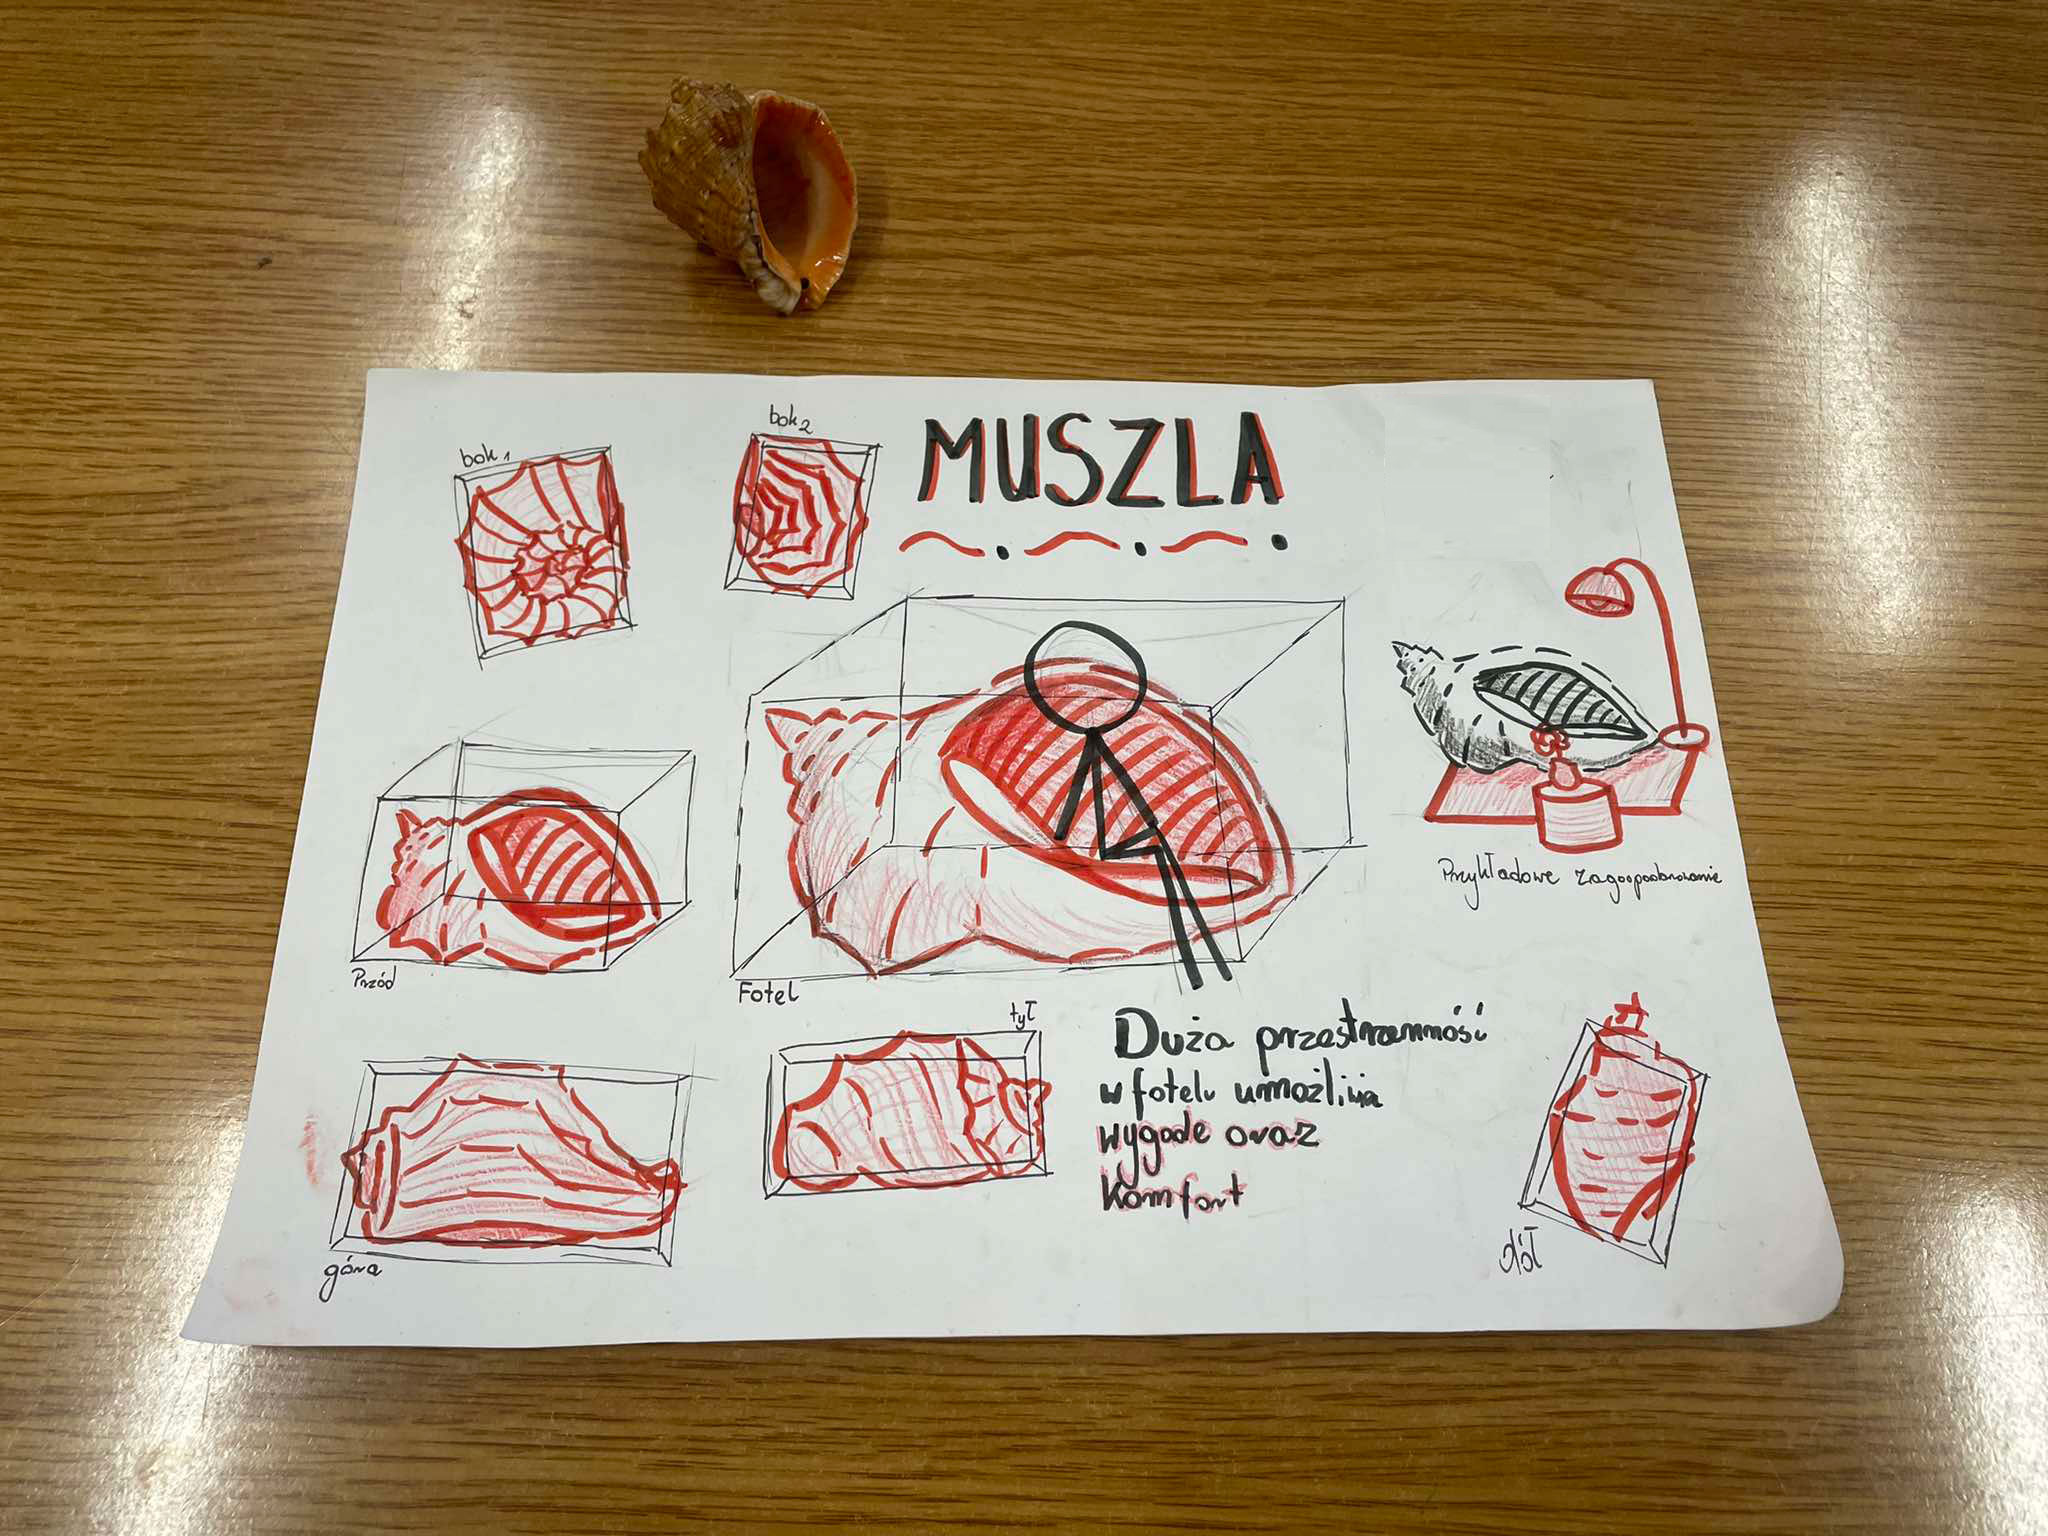 bok 1
bok 2
MUSZLA
Przykładowe zagospodarowanie
Przód
Fotel
tył
Duża przestrzenność
w fotelu umożliwia
wygode oraz
Komfort
góra
dół